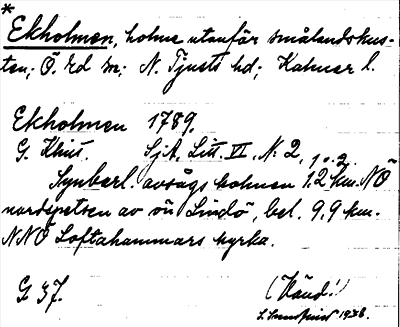 *
Ekholmen, holme utanför smålandskus-
ten; Ö. Ed sn; N. Tjusts hd; Kalmar l.
Ekholmen 1789.
G. Klint. SjA, Litt. VI, N: 2, 1 o. 2.
Synbarl. avsågs holmen 1.2 km. NÖ
nordspetsen av ön Lindö, bel. 9.9 km.
NNÖ Loftahammars kyrka.
G 37. (Känd!)
1938.